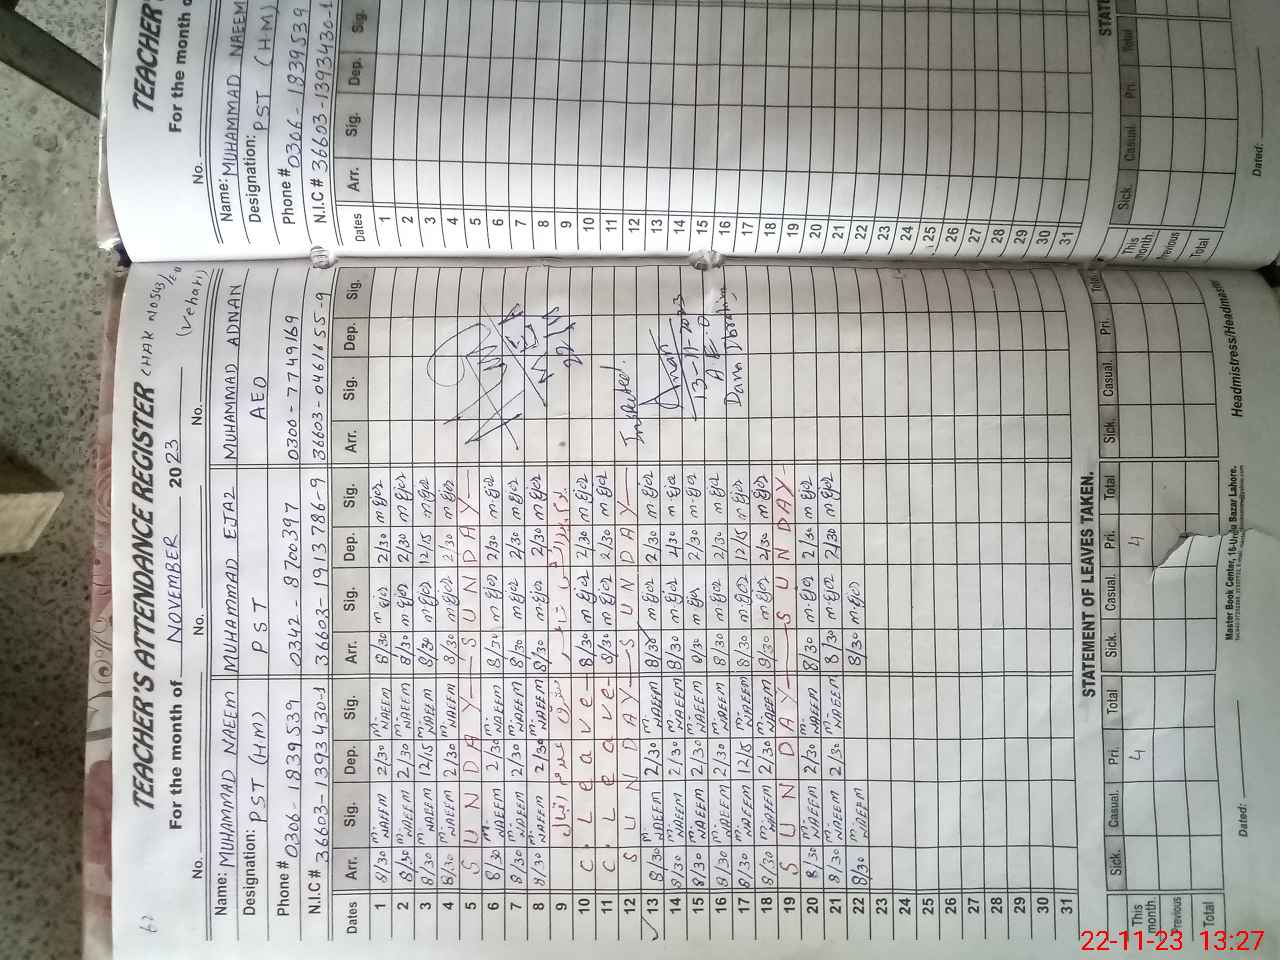 TEACHER'S ATTENDANCE REGISTER CHAK NO 543/EB
For the month of NOVEMBER 2023 (Vehari)
No. No. No.
Name: MUHAMMAD NAEEM MUHAMMAD EJAZ MUHAMMAD ADNAN
Designation: PST (H.M) PST AEO
Phone # 0306-1839539 0342-8700397 0300-7749169
N.I.C # 36603-1393430-1 36603-1913786-9 36603-0461655-9
Dates Arr. Sig. Dep. Sig. Arr. Sig. Dep. Sig. Arr. Sig. Dep. Sig.
1 8/30 M. NAEEM 2/30 M. NAEEM 8/30 m Ejaz 2/30 m Ejaz
2 8/30 M. NAEEM 2/30 M. NAEEM 8/30 m Ejaz 2/30 m Ejaz
3 8/30 M. NAEEM 12/15 M. NAEEM 8/30 m Ejaz 12/15 m Ejaz
4 8/30 M. NAEEM 2/30 M. NAEEM 8/30 m Ejaz 2/30 m Ejaz
5 SUNDAY SUNDAY
6 8/30 M. NAEEM 2/30 M. NAEEM 8/30 m Ejaz 2/30 m Ejaz
7 8/30 M. NAEEM 2/30 M. NAEEM 8/30 m Ejaz 2/30 m Ejaz
8 8/30 M. NAEEM 2/30 M. NAEEM 8/30 m Ejaz 2/30 m Ejaz
9
10 C. Leave 8/30 m Ejaz 2/30 m Ejaz
11 C. Leave 8/30 m Ejaz 2/30 m Ejaz
12 SUNDAY SUNDAY Inspected.
13 8/30 M. NAEEM 2/30 M. NAEEM 8/30 m Ejaz 2/30 m Ejaz
14 8/30 M. NAEEM 2/30 M. NAEEM 8/30 m Ejaz 2/30 m Ejaz
15 8/30 M. NAEEM 2/30 M. NAEEM 8/30 m Ejaz 2/30 m Ejaz 13-11-2023
16 8/30 M. NAEEM 2/30 M. NAEEM 8/30 m Ejaz 2/30 m Ejaz A.E.O
17 8/30 M. NAEEM 12/15 M. NAEEM 8/30 m Ejaz 12/15 m Ejaz Ibrahim
18 8/30 M. NAEEM 2/30 M. NAEEM 8/30 m Ejaz 2/30 m Ejaz
19 SUNDAY SUNDAY
20 8/30 M. NAEEM 2/30 M. NAEEM 8/30 m Ejaz 2/30 m Ejaz
21 8/30 M. NAEEM 2/30 M. NAEEM 8/30 m Ejaz 2/30 m Ejaz
22 8/30 M. NAEEM 8/30 m Ejaz
23
24
25
26
27
28
29
30
31
STATEMENT OF LEAVES TAKEN.
Sick. Casual. Pri. Total Sick. Casual. Pri. Total Sick. Casual. Pri. Total
This month. 4 4
Previous
Total
Dated: Master Book Center, 16-Urdu Bazar Lahore. Headmistress/Headmaster
TEACHER'
For the month o
No.
Name: MUHAMMAD NAEEM
Designation: PST (H.M)
Phone # 0306-1839539
N.I.C # 36603-1393430-1
Dates Arr. Sig. Dep. Sig.
1
2
3
4
5
6
7
8
9
10
11
12
13
14
15
16
17
18
19
20
21
22
23
24
25
26
27
28
29
30
31
STATE
Sick. Casual. Pri. Total
This month.
Previous
Total
Dated:
22-11-23 13:27